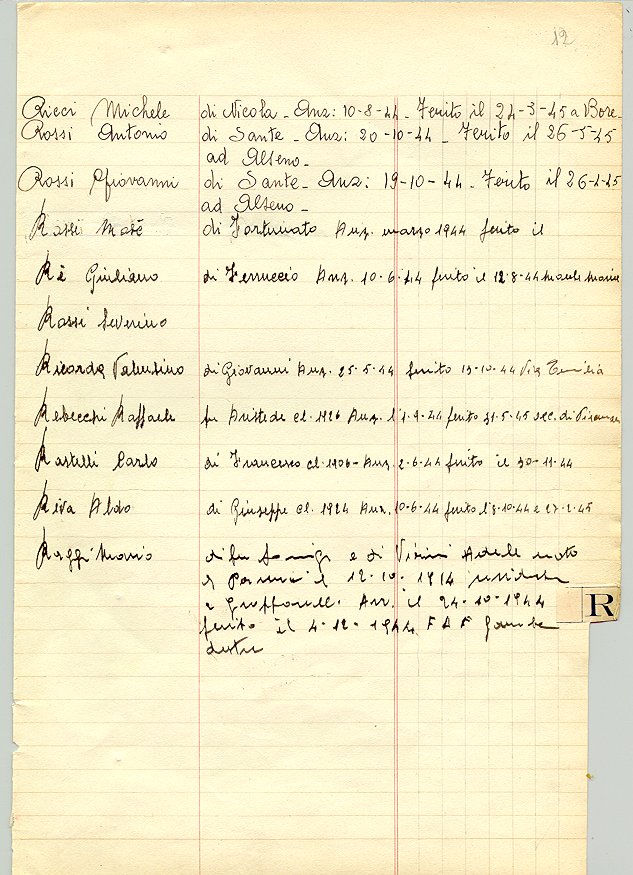 12
Ricci Michele di Nicola - Anz: 10-8-44 - Ferito il 24-3-45 a Bore-
Rossi Antonio di Sante - Anz: 20-10-44 - Ferito il 26-5-45
ad Alseno-
Rossi Giovanni di Sante - Anz: 19-10-44 - Ferito il 26-4-45
ad Alseno-
Rassi Mosè di Fortunato Anz. marzo 1944 ferito il
Rè Giuliano di Ferruccio Anz. 10-6-44 ferito il 12-8-44
Rassi Severino
Ricorda Valentino di Giovanni Anz. 25-5-44 ferito 19-10-44 Via Emilia
Rebecchi Raffaele fu Aristede cl. 1926 Anz. l'1-9-44 ferito 31-5-45 di
Rastelli Carlo di Francesco cl. 1906 - Anz. 2-6-44 ferito il 30-11-44
Riva Aldo di Giuseppe cl. 1924 Anz. 10-6-44 ferito l'8-10-44 e 27-2-45
Raggi Mario di fu e di Adele nato
a il 12-10-1914
a Anz. il 24-10-1944
R
ferito il 4-12-1944 gamba